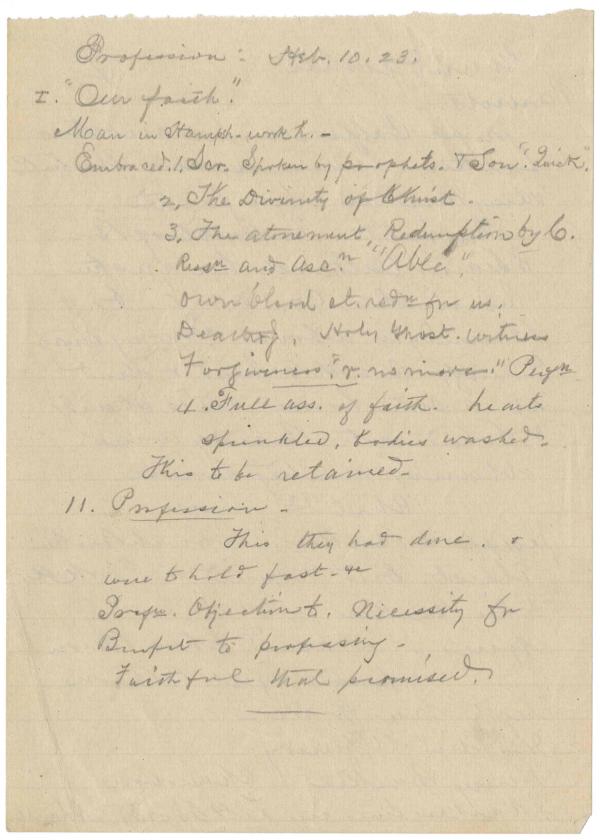 Profession: Heb. 10. 23.
I. "Our faith".
Man in work h. -
Embraced. 1. Scr. Spoken by prophets. & Son". Quick".
2. The Divinity of Christ.
3. The atonement, Redemption by C.
Resn and Ascn. "Able".
own blood et. redn for us.
Holy Ghost. witness
Forgiveness". r. no more." Purgn
4. Full ass. of faith. hearts
sprinkled, bodies washed.
This to be retained.
11. Profession -
This they had done. &
were to hold fast - &c
Profn. Objection to. Necessity for
Benefit to professing -
Faithful that promised.